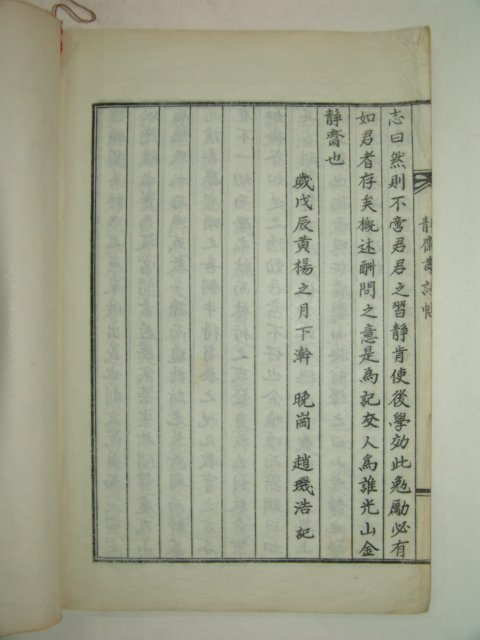 靜齋壽詩帖
志曰然則不啻君君之習靜肯使後學効此勉勵必有
如君者存矣槪述酬問之意是爲記友人爲誰光山金
靜齋也
歲戊辰黃楊之月下澣 晚崗 趙璣浩 記